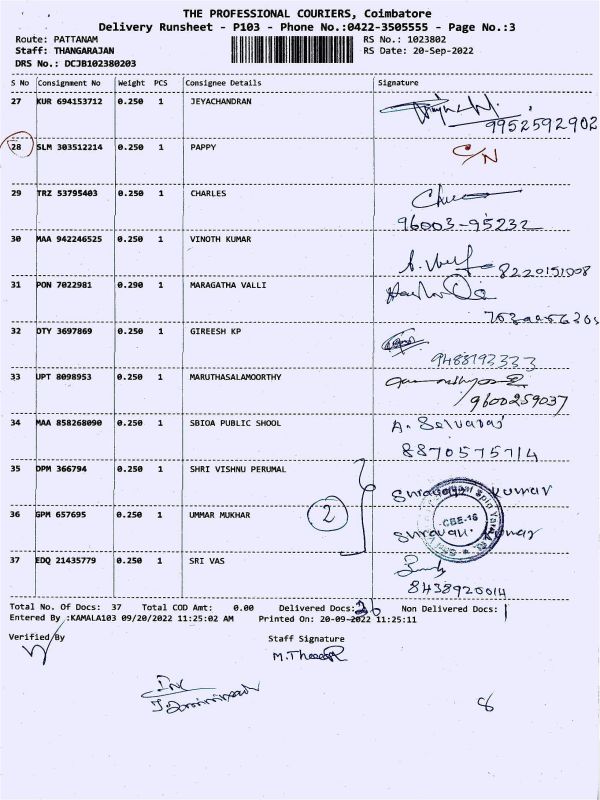 THE PROFESSIONAL COURIERS, Coimbatore
Delivery Runsheet - P103 - Phone No.:0422-3505555 - Page No.:3
Route: PATTANAM RS No.: 1023802
Staff: THANGARAJAN RS Date: 20-Sep-2022
DRS No.: DCJB102380203
S No Consignment No Weight PCS Consignee Details Signature
27 KUR 694153712 0.250 1 JEYACHANDRAN
9952592902
28 SLM 303512214 0.250 1 PAPPY C/N
29 TRZ 53795403 0.250 1 CHARLES
96003-95232
30 MAA 942246525 0.250 1 VINOTH KUMAR
8220151008
31 PON 7022981 0.290 1 MARAGATHA VALLI
32 OTY 3697869 0.250 1 GIREESH KP
9488193333
33 UPT 8098953 0.250 1 MARUTHASALAMOORTHY
9600259037
34 MAA 858268090 0.250 1 SBIOA PUBLIC SHOOL A. Selvaraj
8870575714
35 DPM 366794 0.250 1 SHRI VISHNU PERUMAL
kumar
36 GPM 657695 0.250 1 UMMAR MUKHAR 2 CBE-16
kumar
37 EDQ 21435779 0.250 1 SRI VAS
8438920014
Total No. Of Docs: 37 Total COD Amt: 0.00 Delivered Docs: Non Delivered Docs: 1
Entered By :KAMALA103 09/20/2022 11:25:02 AM Printed On: 20-09-2022 11:25:11
Verified By Staff Signature
8